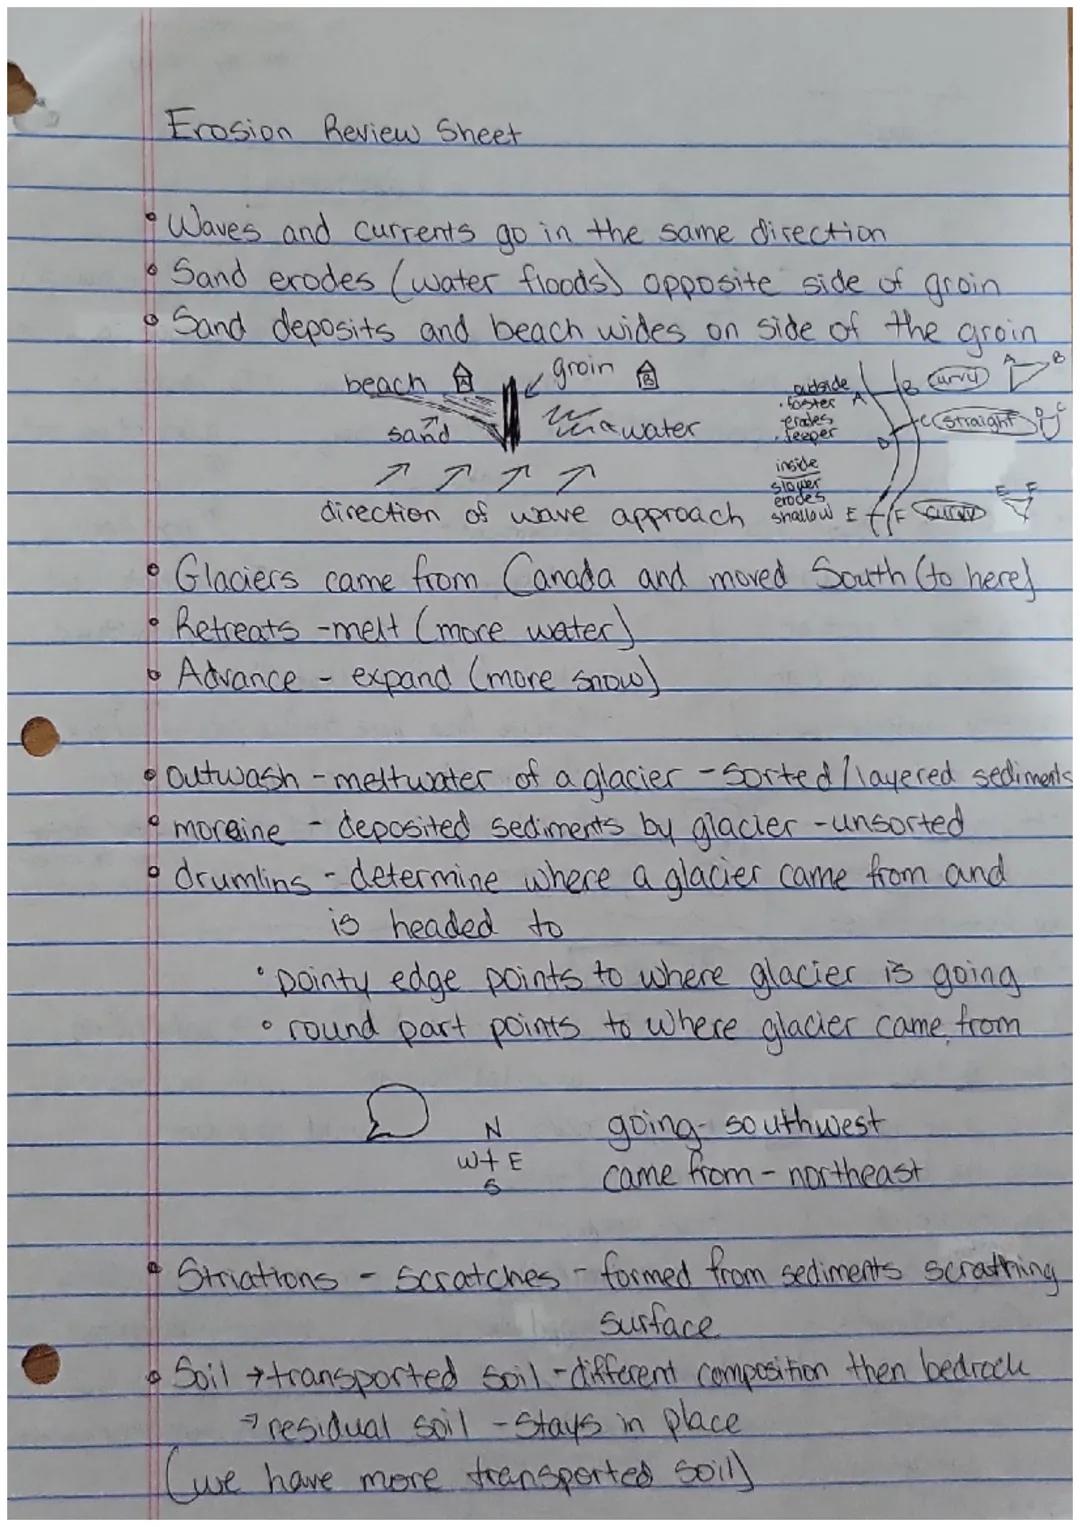 Erosion Review Sheet
• Waves and currents go in the same direction
• Sand erodes (water floods) opposite side of groin
• Sand deposits and beach wides on side of the groin
beach A groin B
sand water
direction of wave approach
outside
• faster
erodes
• deeper
inside
slower
erodes
shallow
A B curvy A B
D C straight D C
E F curvy E F
• Glaciers came from Canada and moved South (to here)
• Retreats - melt (more water)
• Advance - expand (more snow)
• outwash - meltwater of a glacier - sorted/layered sediments
• moraine - deposited sediments by glacier - unsorted
• drumlins - determine where a glacier came from and
is headed to
• pointy edge points to where glacier is going
• round part points to where glacier came from
N
W + E
S
going - southwest
came from - northeast
• Striations - scratches - formed from sediments scrathing
surface
• Soil → transported soil - different composition then bedrock
→ residual soil - stays in place
(we have more transported soil)